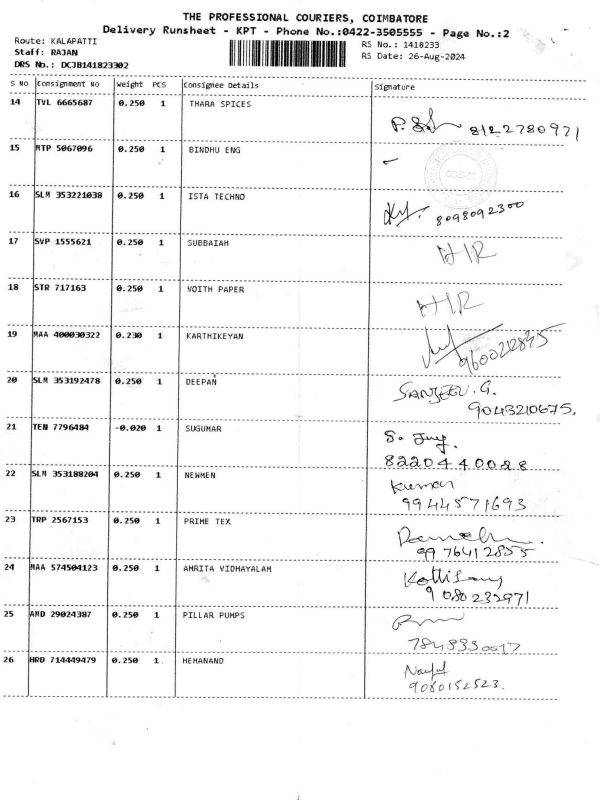 THE PROFESSIONAL COURIERS, COIMBATORE
Delivery Runsheet - KPT - Phone No.:0422-3505555 - Page No.:2
Route: KALAPATTI
Staff: RAJAN
DRS No.: DCJB141823302
RS No.: 1418233
RS Date: 26-Aug-2024
S NO Consignment No Weight PCS Consignee Details Signature
14 TVL 6665687 0.250 1 THARA SPICES
8122780971
15 MTP 5067096 0.250 1 BINDHU ENG
16 SLM 353221038 0.250 1 ISTA TECHNO
8098092300
17 SVP 1555621 0.250 1 SUBBAIAH
18 STR 717163 0.250 1 VOITH PAPER
19 MAA 400030322 0.230 1 KARTHIKEYAN
9600212845
20 SLM 353192478 0.250 1 DEEPAN
SANJEEV. G.
9043210675.
21 TEN 7796484 -0.020 1 SUGUMAR
8220440028
22 SLM 353188204 0.250 1 NEWMEN
Kumar
9944571693
23 TRP 2567153 0.250 1 PRIME TEX
9976412855
24 MAA 574504123 0.250 1 AMRITA VIDHAYALAM
9080232971
25 AMD 29024387 0.250 1 PILLAR PUMPS
7848330017
26 HRD 714449479 0.250 1 HEMANAND
9080152523.